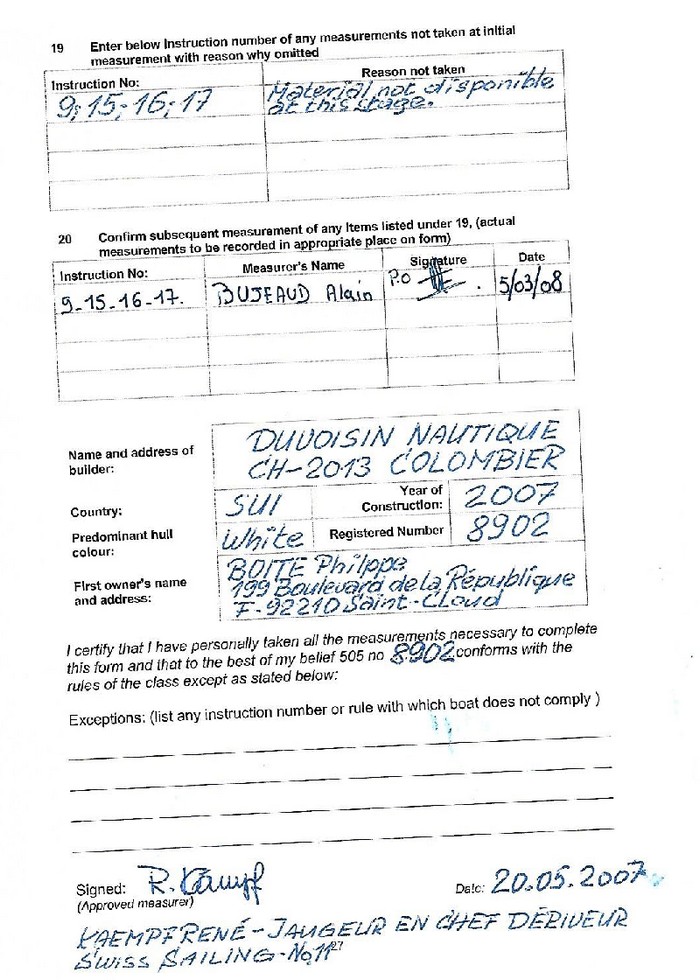 19 Enter below Instruction number of any measurements not taken at initial
measurement with reason why omitted
Instruction No: Reason not taken
9; 15; 16; 17 Material not disponible
at this stage.
20 Confirm subsequent measurement of any Items listed under 19, (actual
measurements to be recorded in appropriate place on form)
Instruction No: Measurer's Name Signature Date
9-15-16-17. BUJEAUD Alain P.O 5/03/08
Name and address of
builder:
DUVOISIN NAUTIQUE
CH-2013 COLOMBIER
Country: SUI Year of
Construction: 2007
Predominant hull
colour: White Registered Number 8902
First owner's name
and address:
BOITE Philippe
199 Boulevard de la République
F-92210 Saint-Cloud
I certify that I have personally taken all the measurements necessary to complete
this form and that to the best of my belief 505 no 8902 conforms with the
rules of the class except as stated below:
Exceptions: (list any instruction number or rule with which boat does not comply )
Signed: R. Kämpf Date: 20.05.2007
(Approved measurer)
KAEMPF RENÉ - JAUGEUR EN CHEF DÉRIVEUR
SWISS SAILING - No